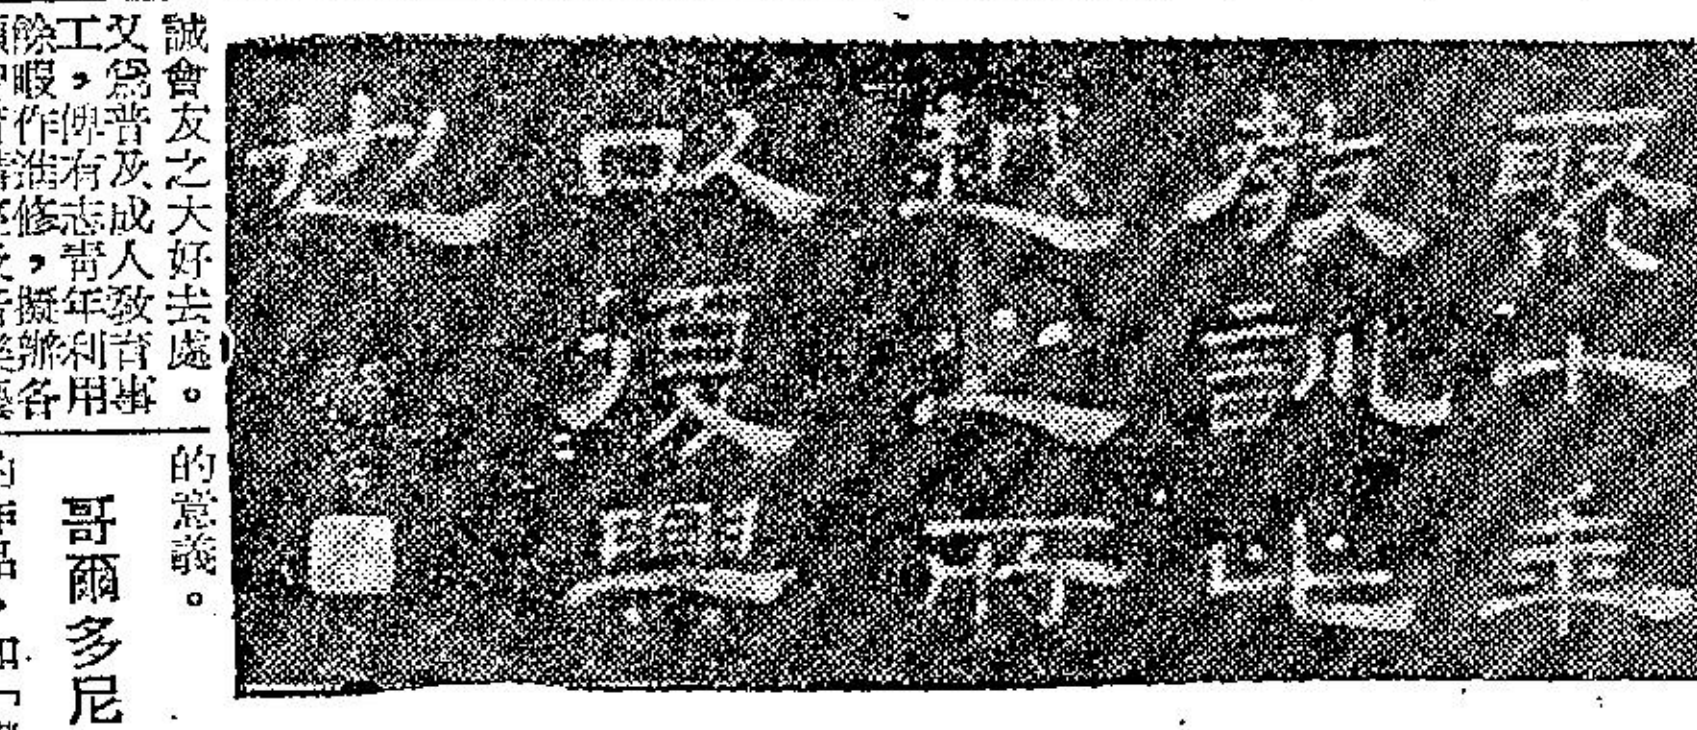 聚十年
教訓此
越之所
以復興
也
誠會友之大好去處。
又爲普及成人教育事
工，俾有志靑年利用
餘暇作進修，擬辦各
的意義。
哥爾多尼